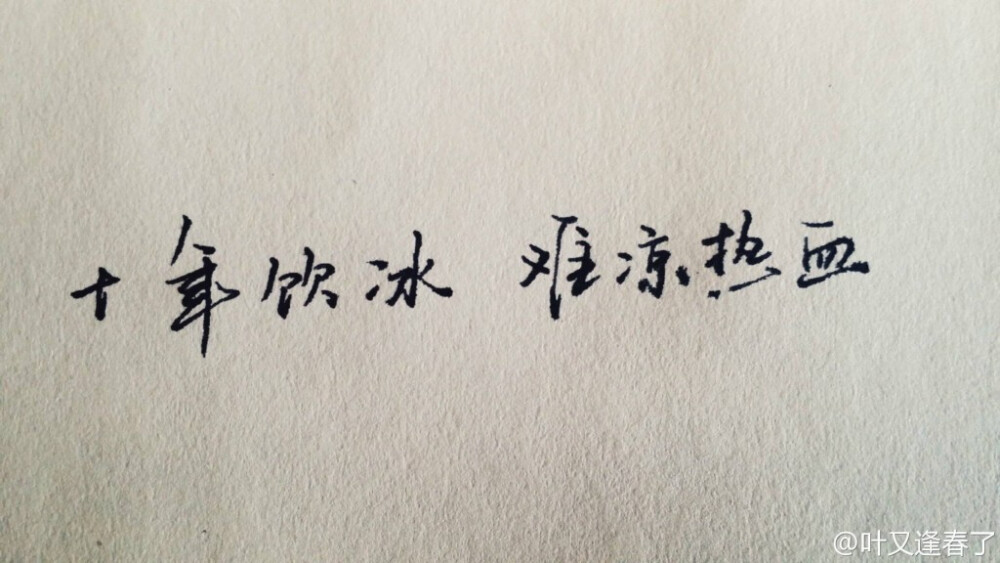 十年饮冰 难凉热血
@叶又逢春了